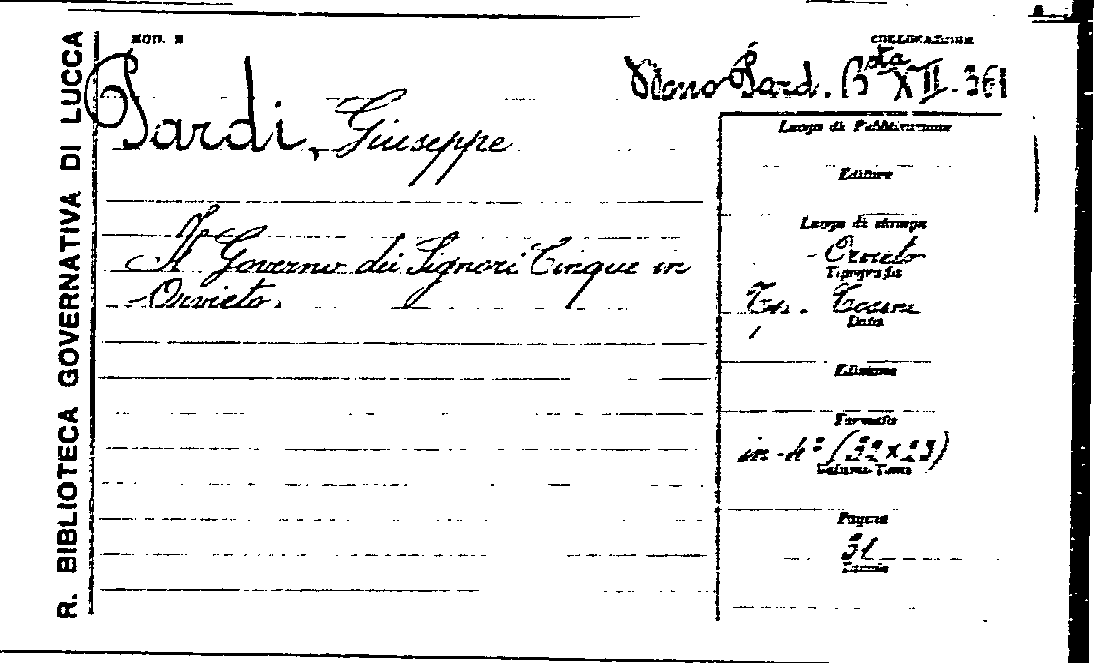 R. BIBLIOTECA GOVERNATIVA DI LUCCA
MOD. 2
COLLOCAZIONE
Mono Pard. Bsta XII - 361
Pardi, Giuseppe
Il Governo dei Signori Cinque in
Orvieto.
Luogo di Pubblicazione
Editore
Luogo di stampa
Orvieto
Tipografia
Tip. Tosini
Data
Edizione
Formato
in-4° (32×23)
Volume-Tomo
Pagine
31